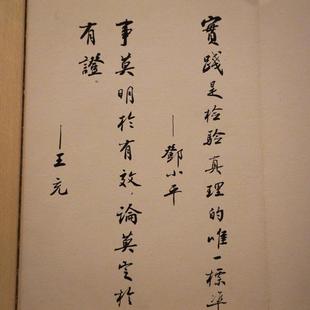 實踐是检验真理的唯一標準
—鄧小平
事莫明於有效論莫定於
有證.
—王充